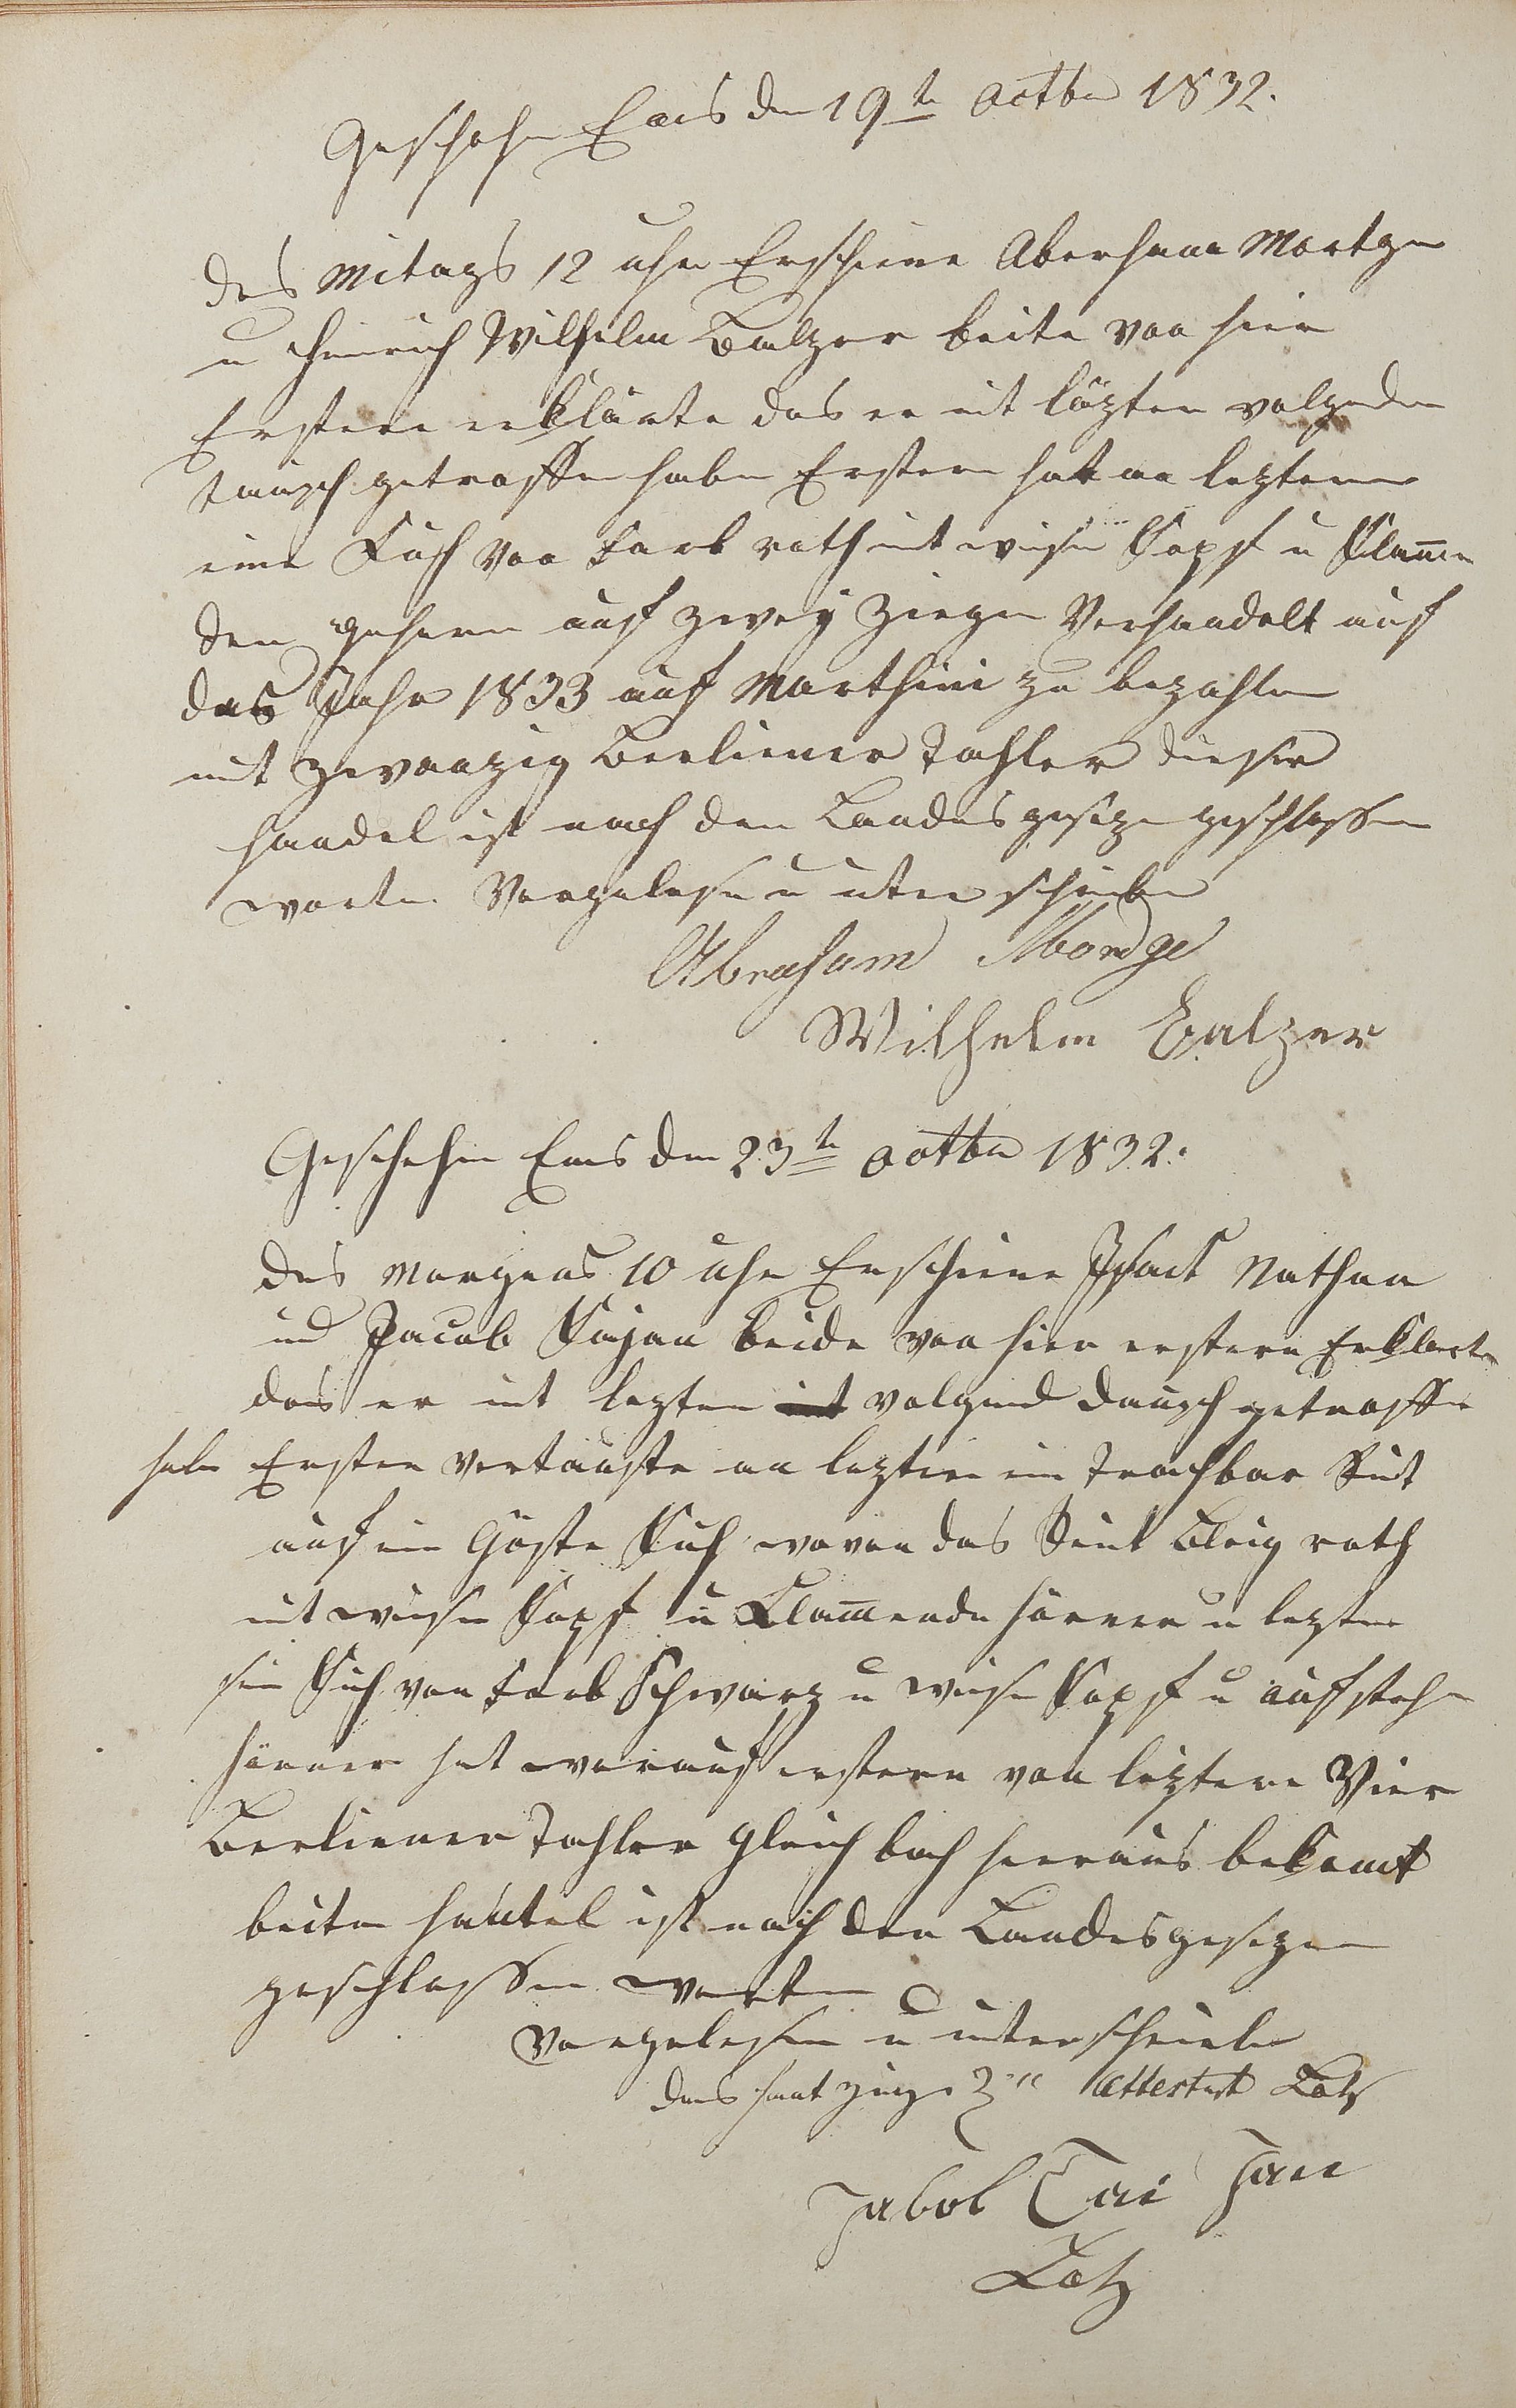 Geschehn Ems den 19te Octbr 1832.
des Mitags 12 uhr Erschiene Aberham Mortge
u Heinrich Wilhelm Balzer beite von hier
Erstere erklärte das er mit läzten volgenden
tausch getroffen habe Erstere hat an leztern
eine Kuh von Farb roth mit weisen Kopf u Klamen
den gehörn auf zwey Ziegen Verhandelt auf
das Jahr 1833 auf Marthini zu bezahlen
mit zwanzig Berliener Tahler dieser
handel ist nach den Landes geseze geschlossen
worten. Vorgelesen u unterschrieben
Abraham Mordge
Wilhelm Balzer
Geschehen Ems den 23te Octbr 1832.
des Morgens 10 uhr Erschiene Isack Nathan
und Jacob Kajan beide von hier erstere Erklarte
das er mit lezten mit volgend dausch getroffen
habe Erstere vertauste an leztere ein Trachbar Rint
auf ein Göste Kuh wovon das Rint Bleig roth
mit weisen Kopf u Klamende hörner u leztere
sein Kuh von Farb Schwarz u weisen Kopf u aufstehn
hörner hat worauf erstere von leztere Vier
Berliener Tahler gleich bach heraus bekomt
beiten hantel ist nach den Landesgesezen
geschlossen worten
Vorgelesen u unterschrieben
das hant zeigen attestirt Lotz
Jabol Cai Jan
Lotz